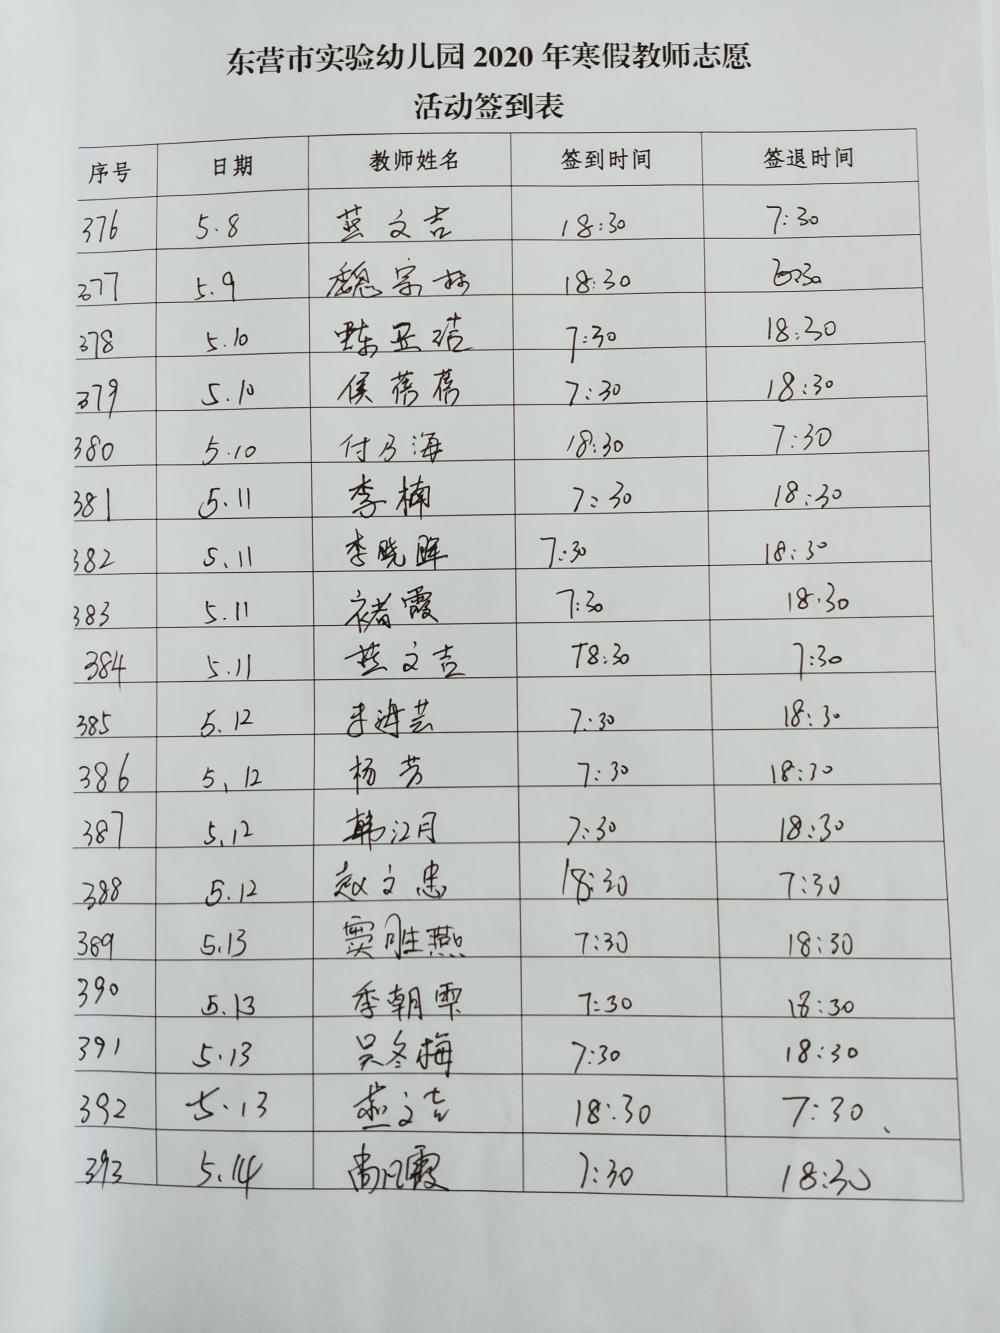 东营市实验幼儿园 2020 年寒假教师志愿
活动签到表
序号 日期 教师姓名 签到时间 签退时间
376 5.8 燕文吉 18:30 7:30
377 5.9 魏宗林 18:30
378 5.10 陈亚洁 7:30 18:30
379 5.10 侯蓓蓓 7:30 18:30
380 5.10 付乃海 18:30 7:30
381 5.11 李楠 7:30 18:30
382 5.11 李晓晖 7:30 18:30
383 5.11 褚霞 7:30 18:30
384 5.11 燕文吉 18:30 7:30
385 5.12 7:30 18:30
386 5.12 杨芳 7:30 18:30
387 5.12 韩江月 7:30 18:30
388 5.12 赵文忠 18:30 7:30
389 5.13 窦胜燕 7:30 18:30
390 5.13 季朝霞 7:30 18:30
391 5.13 吴冬梅 7:30 18:30
392 5.13 燕文吉 18:30 7:30
393 5.14 尚凡霞 7:30 18:30